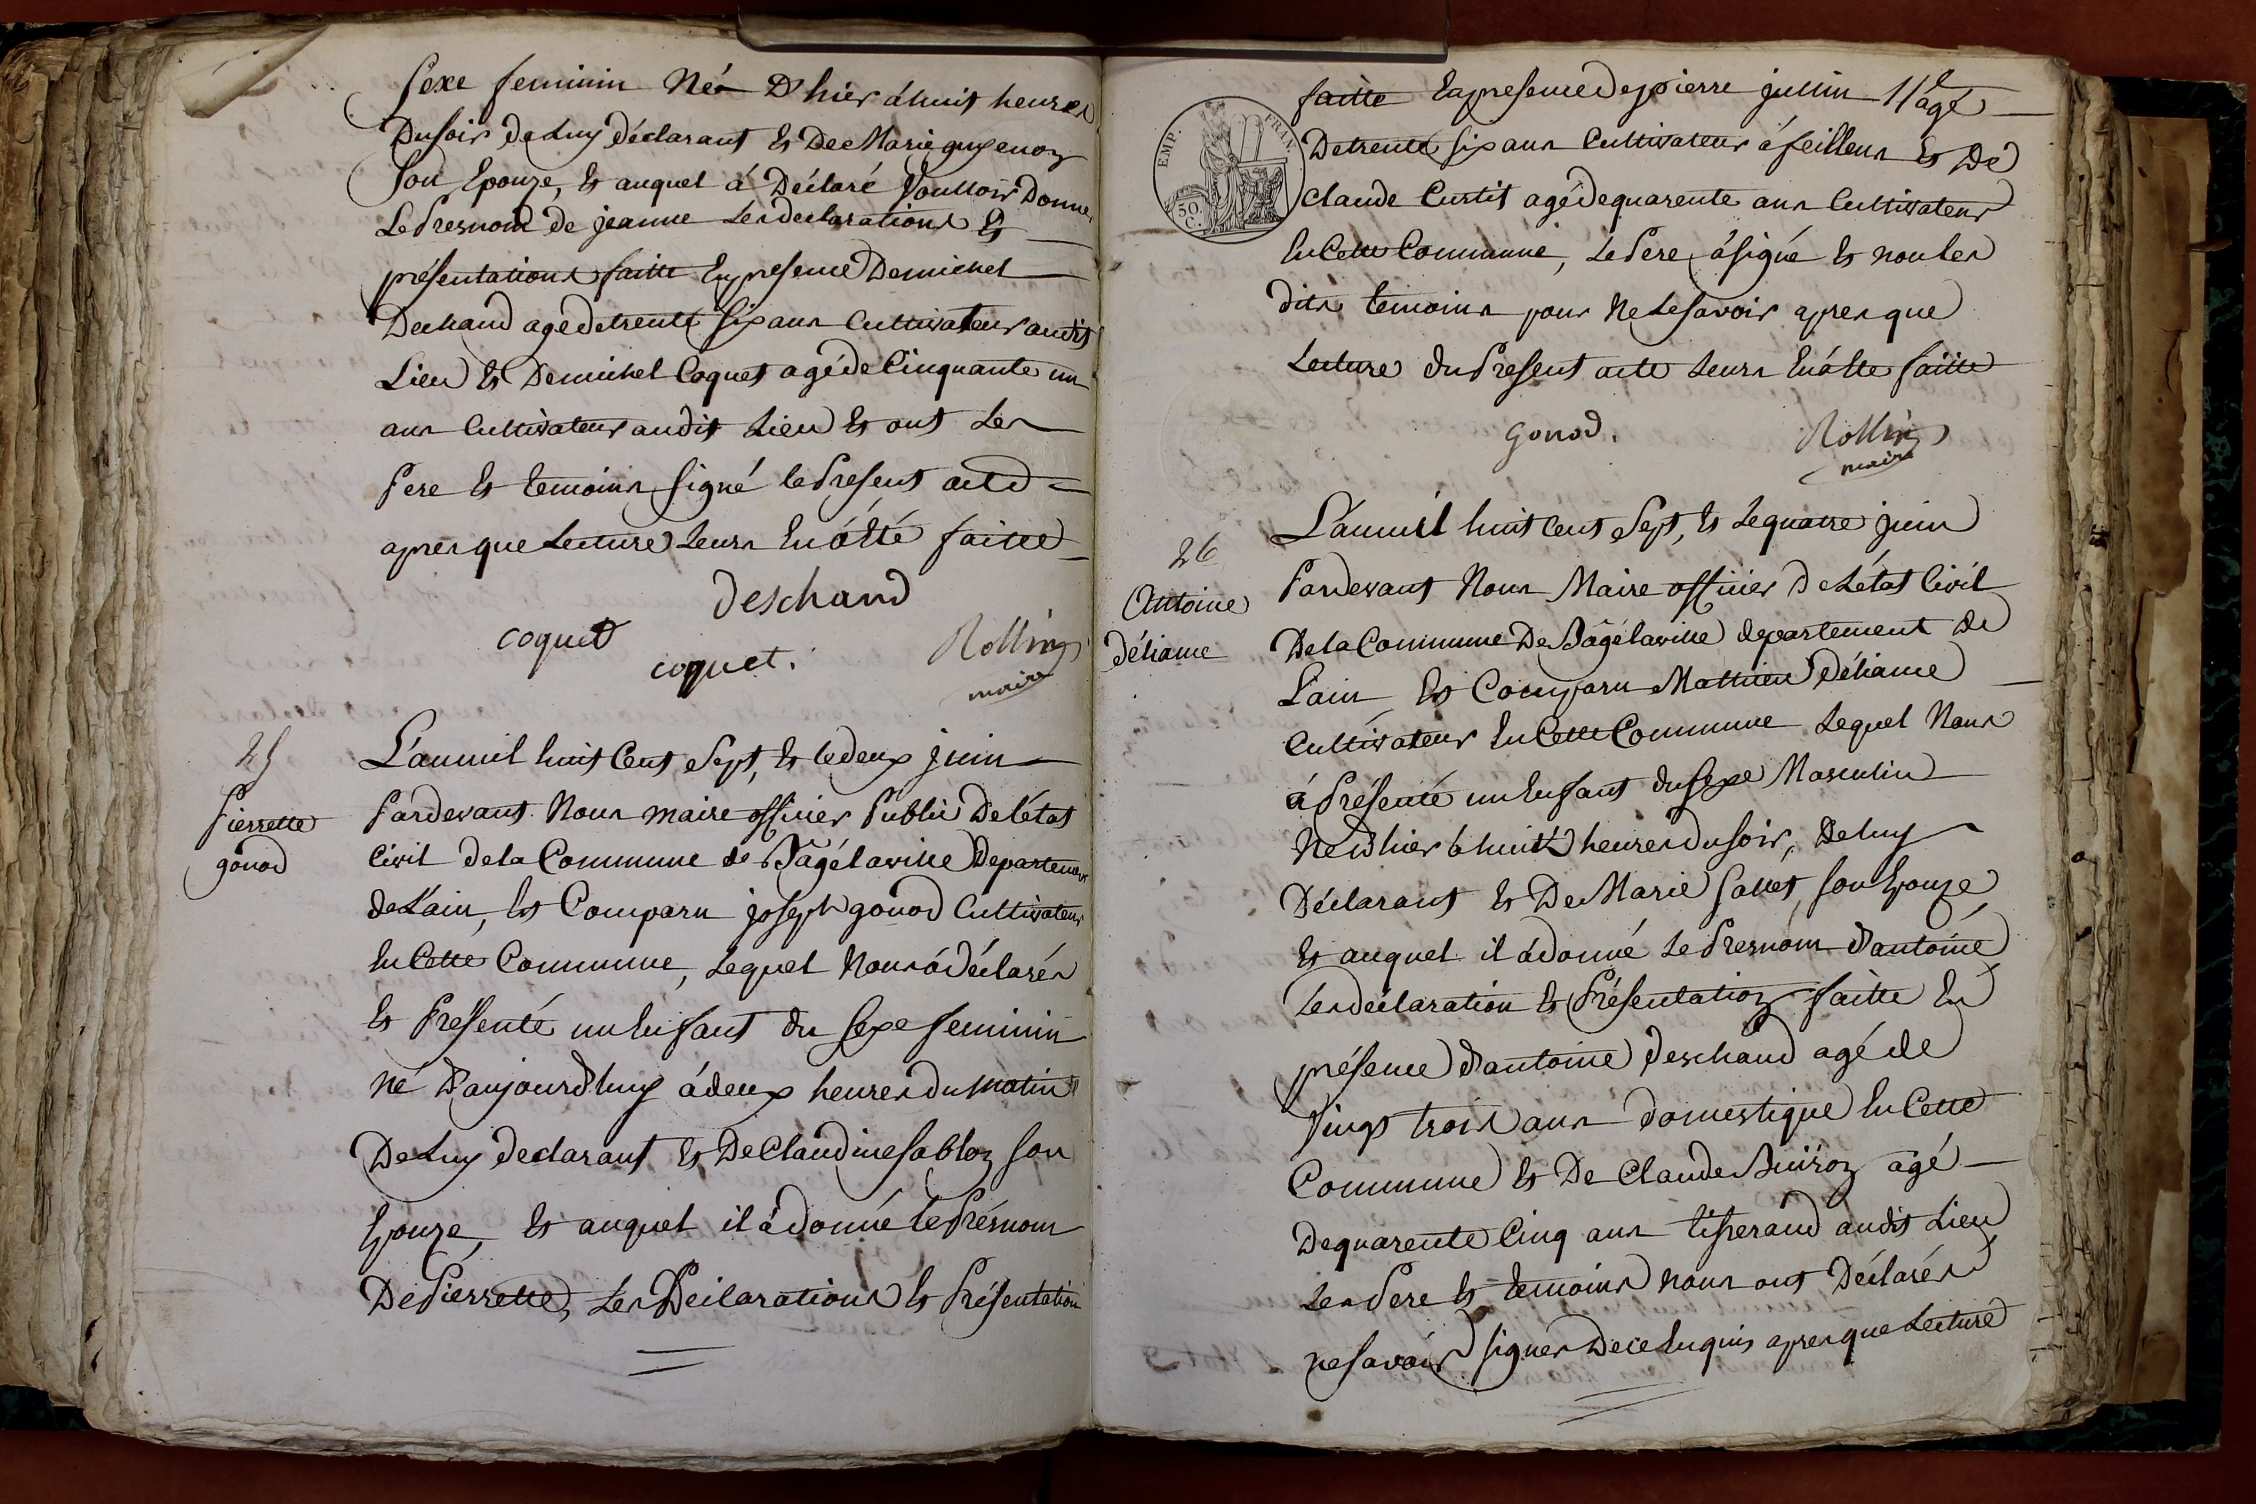 sexe feminin Née D'hier á huit heures
Du soir de Luy déclarant et De Marie guyenoz
Son Epouze, et auquel á Déclaré Voulloir Donner
Le Presnom de jeanne Les declarations et
présentations faitte En presence De michel
Dechand agé de trente six ans Cultivateur audit
Lieu et De michel Coquet agé de Cinquante un
ans Cultivateur audit Lieu et ont Les
Pere et temoins signé le Present acte
apres que Lecture Leurs En á été faitte
Deschand
coquet
coquet.
Rollin
maire
25
Pierrette
gonod
L'an mil huit Cent Sept, et le deux juin
Pardevant Nous maire officier Public De l'état
Civil de la Commune de Bâgé la ville Departement
de L'ain, Est Comparu joseph gonod Cultivateur
En Cette Commune, Lequel Nous á déclarés
Et Presenté un Enfant du sexe feminin
né D'aujourd'huy á deux heures du matin
De Luy declarant et De Claudine Sabloz son
Epouze, et auquel il á donné le Présnom
De Pierrette, Les Déclarations et Présentation
EMP. FRAN.
50 C.
faitte En presence De pierre jullin agé
De trente six ans Cultivateur á feillens et De
Claude Curtit agé de quarente ans Cultivateur
En Cette Commune, Le Pere á signé et non les
dits temoins pour Ne Le savoir apres que
Lecture du Present acte Leurs En á été faitte
gonod.
Rollin
maire
26
Antoine
Déliance
L'an mil huit Cent Sept, et Le quatre juin
Pardevant Nous Maire officier de L'état Civil
De la Commune De Bâgé la ville departement De
L'ain Est Comparu Mathieu Déliance
Cultivateur En Cette Commune Lequel Nous
á Présenté un Enfant du sexe Masculin
Né D'hier á huit heures du soir, De luy
Déclarant et De Marie Sallet, son Epouze,
Et auquel il á donné Le Presnom D'antoine
Les déclaration et Présentation faitte En
présence D'antoine Deschand agé de
Vingt trois ans Domestique En Cette
Commune et De Claude Buiroz agé
De quarente Cinq ans tisserand audit Lieu
Les Pere et temoins nous ont Déclarés
ne savoir signer De ce Enquis apres que Lecture